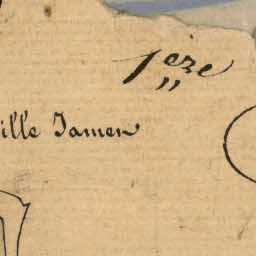 1eze
ille Jamen